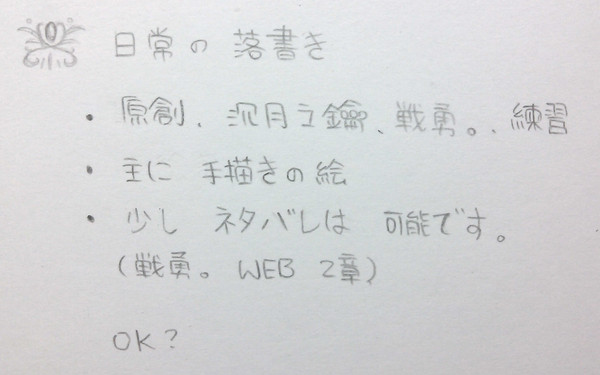 日常の 落書き
・原創、沉月之鑰、戦勇。、練習
・主に 手描きの絵
・少し ネタバレは 可能です。
(戦勇。 WEB 2章)
OK?